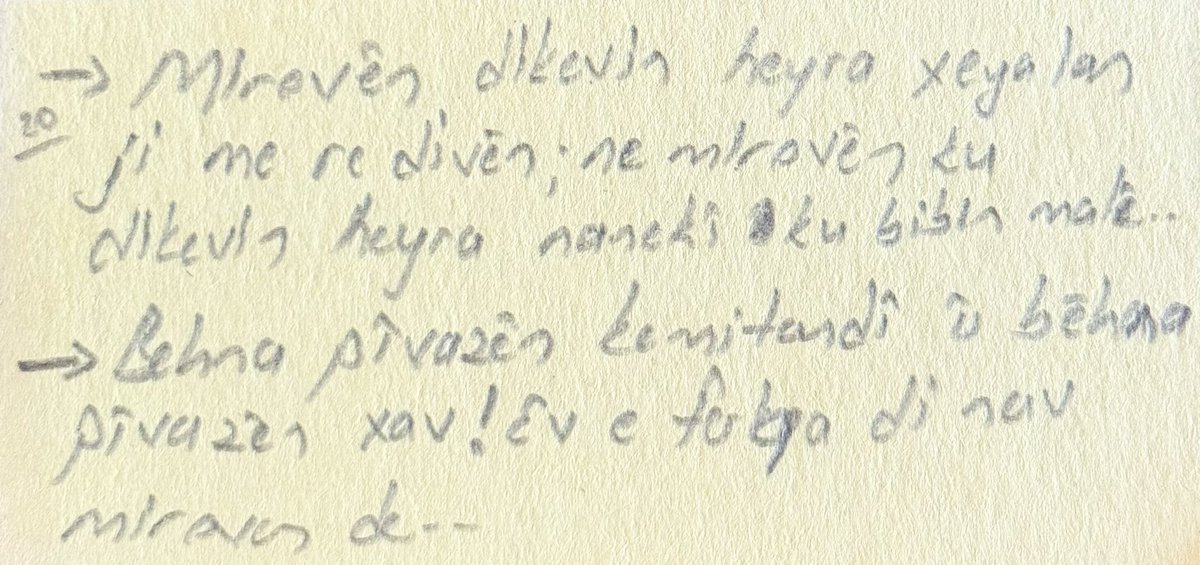 → Mirovên dikevin heyra xeyalan
20
ji me re divên; ne mirovên ku
dikevin heyra nanekî ku bibin malê..
→ Behna pîvazên kemitandî û bêhna
pîvazên xav! Ev e ferqa di nav
mirovan de--